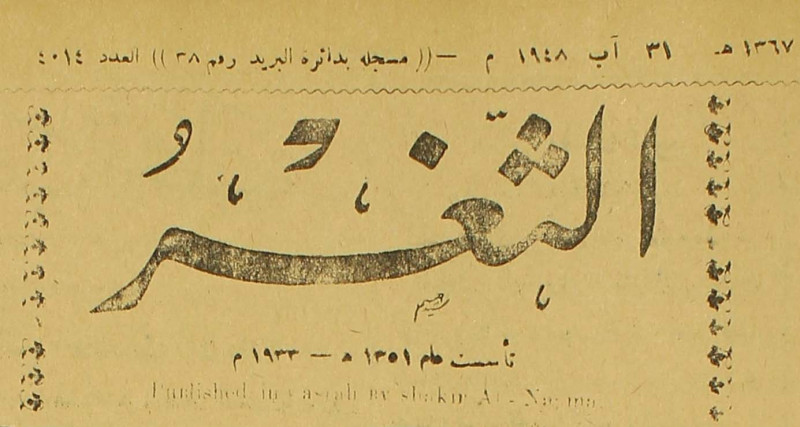 ١٣٦٧ هـ ٣١ آب ١٩٤٨ م —(( مسجله بدائرة البريد رقم ٣٨ )) العدد ٤٠١٤
الثَّغْرُ
تأسست عام ١٣٥١ ه — ١٩٣٣ م
Published in Basrah by Shakir Al-